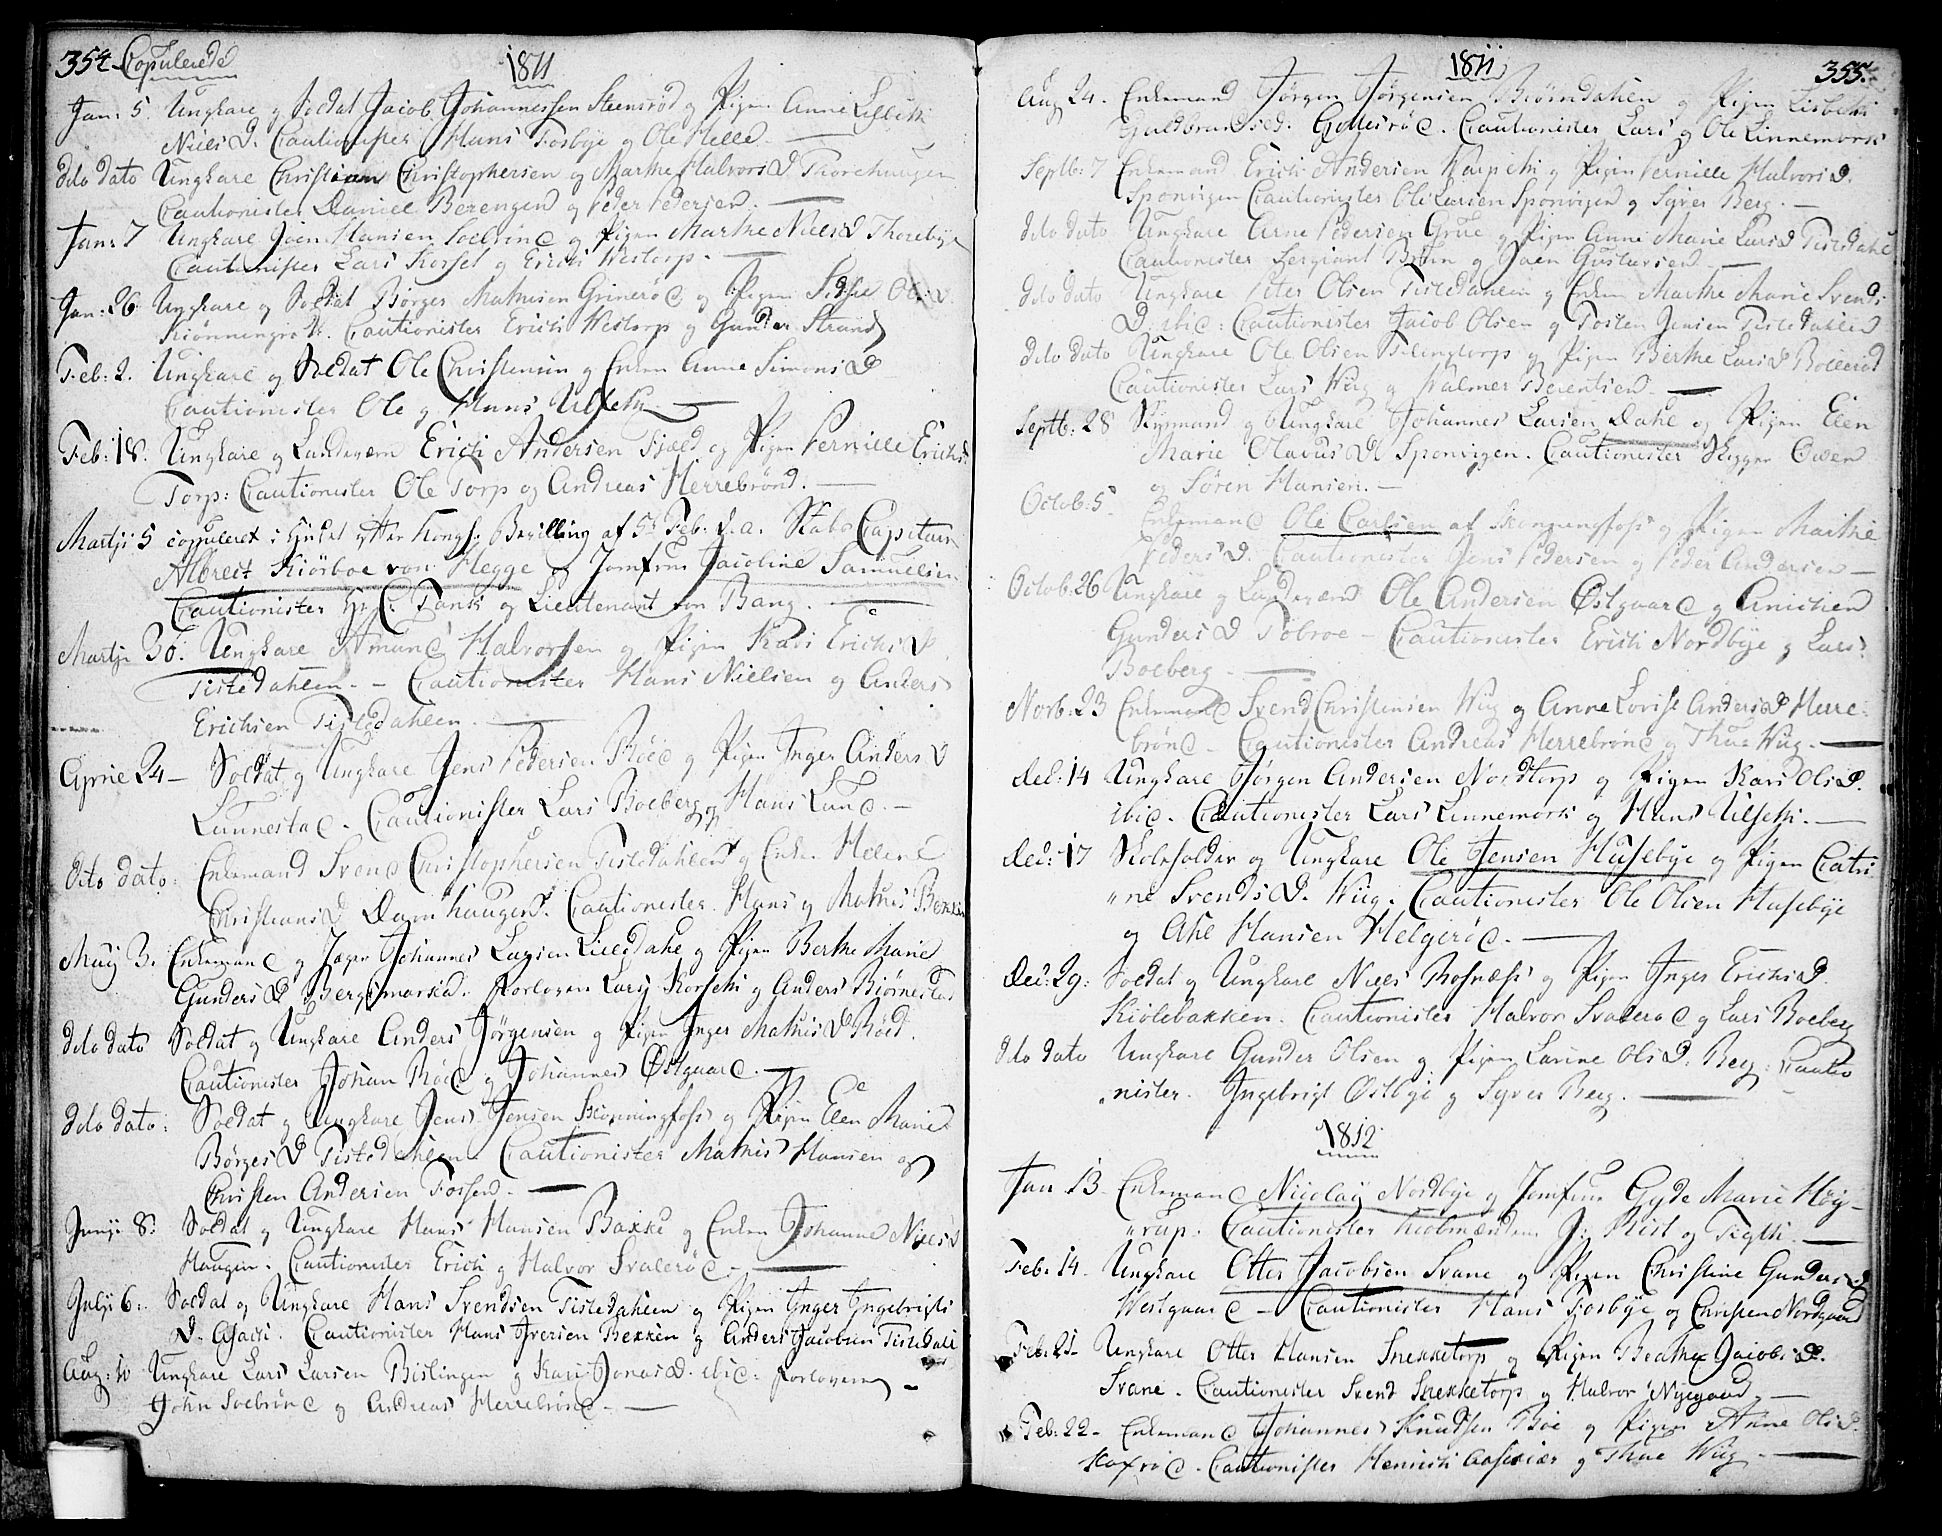 354. Copulerede 1811
Jan: 5. Ungkarl og Soldat Jacob Johannessen Steensrød og Pigen Anne Lisbeth
Niels D. Cautionister Hans Fosbye og Ole Helle. —
dito dato Ungkarl Christian Christophersen og Marthe Halvors D. Thorehaugen
Cautionister Daniel Berengen og Peder Pedersen. —
Jan: 7 Ungkarl Joen Hansen Soebrønd og Pigen Marthe Niels D. Thorebye
Cautionister Lars Korset og Erich Westorp. —
Jan: 26 Ungkarl og Soldat Børger Mathisen Grinerød og Pigen Sidsel Ols D.
Cautionister Erich Westorp og Gunder Strand
Feb: 2. Ungkarl og Soldat Ole Christensen og Enken Anne Simons D
Cautionister Ole og Hans Ulseth. —
Feb: 18. Ungkarl og Landeværn Erich Andersen Fjeld og Pigen Pernille Erichs D
Torp: Cautionister Ole Torp og Andreas Herrebrønd. —
Martji 5 copuleret i Huset efter Kongl. Bevilling af 5t Feb. d. a. Stabs Capitain
Albrect Kiørboe von Hegge og Jomfrue Jacoline Samuelsen.
Cautionister Hr. C: Tank og Lieutenant von Bang. —
Martji 30. Ungkarl Amund Halvorsen og Pigen Kari Erichs D.
Tistedahlen. — Cautionister Hans Nielsen og Anders
Erichsen Tistedahlen. —
April 24 — Soldat og Ungkarl Jens Pedersen Röed og Pigen Inger Anders D
Lunnestad. Cautionister Lars Boeberg og Hans Lund. —
dito dato: Enkemand Svend Christophersen Tistedahlen og Enken Helene
Christians D Damhaugen. Cautionister Hans og Mathis
May 3. Enkemand og Jæger Johannes Larsen Lilledahl og Pigen Berthe Marie
Gunders D Bergsmarked. Forlovere Lars Korseth og Anders Biørnestad
dito dato Soldat og Ungkarl Anders Jörgensen og Pigen Inger Mathis D Röed.
Cautionister Johan Röed og Johannes Østgaard. —
dito dato: Soldat og Ungkarl Jens Jensen Skonningfoss og Pigen Elen Marie
Börges D Tistedahlen Cautionister Mathis Hansen og
Christen Andersen Fossen. —
Junji 8: Soldat og Ungkarl Hans Hansen Bakke og Enken Johanne Niels D
Haugen. Cautionister Erich og Halvor Svalerød. —
Julji 6: Soldat og Ungkarl Hans Svendsen Tistedahlen og Pigen Inger Ingebrigts
D. Asach. Cautionister Hans Iversen Bekken og Anders Jacobsen Tistedahl
Aug: 10 Ungkarl Lars Larsen Bislingen og Kari Jonas D. ibid: Forlovere —
John Soebrönd og Andreas Herrebrönd. —
1811 355.
Aug 24. Enkemand Jörgen Jörgensen Biörndahlen og Pigen Lisbeth
Guldbrands D. Gollesröd. Cautionister Lars og Ole Linnemork
Septb: 7 Enkemand Erich Andersen og Pigen Pernille Halvors D.
Sponvigen Cautionister Ole Larsen Sponvigen og Syver Berg. —
dito dato Ungkarl Arne Pedersen Grue og Pigen Anne Marie Lars D Tistedahl
Cautionister Sergiant Brun og Joen Gustavsen —
dito dato Ungkarl Peter Olsen Tistedahlen og Enken Marthe Marie Svends
D. ibid: Cautionister Jacob Olsen og Tosten Jensen Tistedahlen
dito dato Ungkarl Ole Olsen og Pigen Berthe Lars D Bollerød
Cautionister Lars Wiig og Halmer Berentsen. —
Septb: 28 Rygmand og Ungkarl Johannes Larsen Dahl og Pigen Elen
Marie Olavus D Sponvigen. Cautionister Skipper Owen
og Søren Hansen. —
Octob: 5 Enkemand Ole Carlsen af Skonningfoss og Pigen Marthe
Peders D. Cautionister Jens Pedersen og Peder Andersen —
Octob: 26 Ungkarl og Landeværn Ole Andersen Østgaard og Anichen
Gunders D Tobroe — Cautionister Erich Nordbye og Lars
Boeberg —
Novb: 23 Enkemand Svend Christensen Wiig og Anne Lovise Anders D Herre-
brønd — Cautionister Andreas Herrebrønd og Thue Wiig. —
Dec: 14 Ungkarl Jörgen Andersen Nordtorp og Pigen Kari Ols D.
ibid. Cautionister Lars Linnemork og Hans Ulseth. —
Dec: 17 Skoleholder og Ungkarl Ole Jensen Husebye og Pigen Catri
"ne Svends D. Wiig. Cautionister Ole Olsen Husebye
og Ahl Hansen Helgeröd. —
Dec: 29: Soldat og Ungkarl Niels Rosnæss og Pigen Inger Erichs D.
Kiölebakken. Cautionister Halvor Svaleröd og Lars Boeberg
dito dato Ungkarl Gunder Olsen og Pigen Larine Ols D. Berg: Cautio
"nister. Ingebrigt Østbye og Syver Berg. —
1812
Jan 13. Enkemand Nicolay Nordbye og Jomfrue Gyde Marie Høy-
"rup. Cautionister Kiøbmændene J. Stist og Tigth. —
Feb: 14. Ungkarl Otter Jacobsen Svane og Pigen Christine Gunders D
Westgaard — Cautionister Hans Fosbye og Christen Nordgaard
Feb: 21 — Ungkarl Otter Hansen Snekketorp og Pigen Beathe Jacobs D.
Svane. Cautionister Svend Snekketorp og Halvor Nyegaard. —
Feb: 22 — Enkemand Johannes Knudsen Böe og Pigen Anne Ols D.
Cautionister Henrich Aaskiær og Thue Wiig —